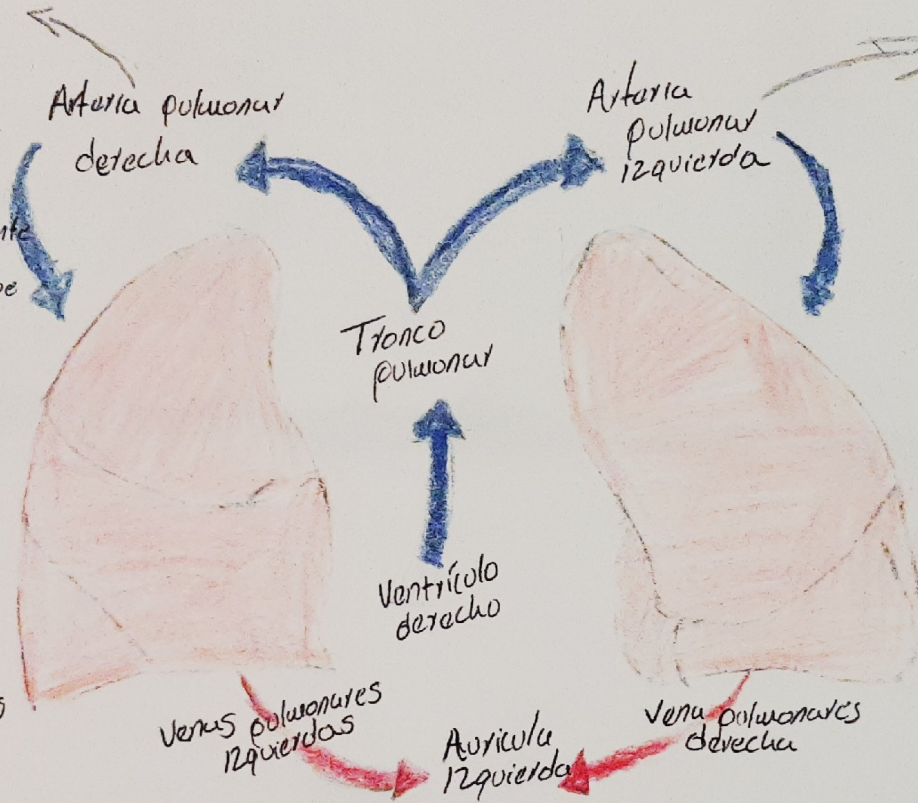 Arteria pulmonar
derecha
Arteria
pulmonar
izquierda
Tronco
pulmonar
Ventrículo
derecho
Venas pulmonares
izquierdas
Auricula
izquierda
Vena pulmonares
derecha